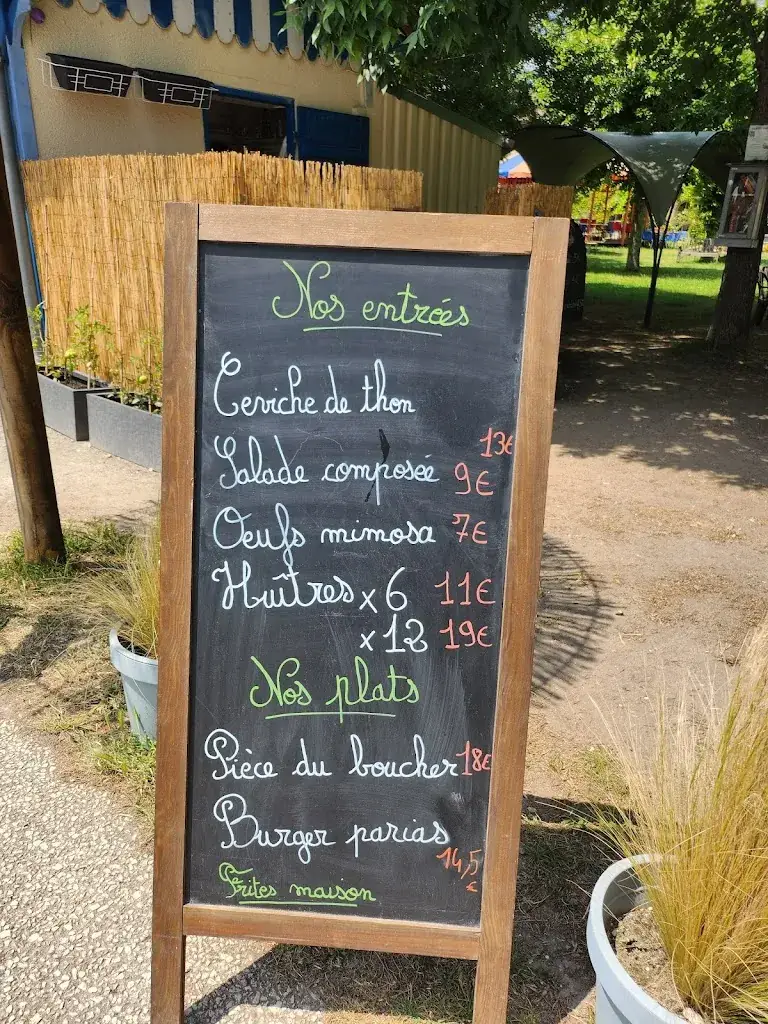 Nos entrées
Ceviche de thon
13€
Salade composée 9€
Oeufs mimosa 7€
Huîtres x 6 11€
x 12 19€
Nos plats
Pièce du boucher 18€
Burger parias
14,5
€
Frites maison